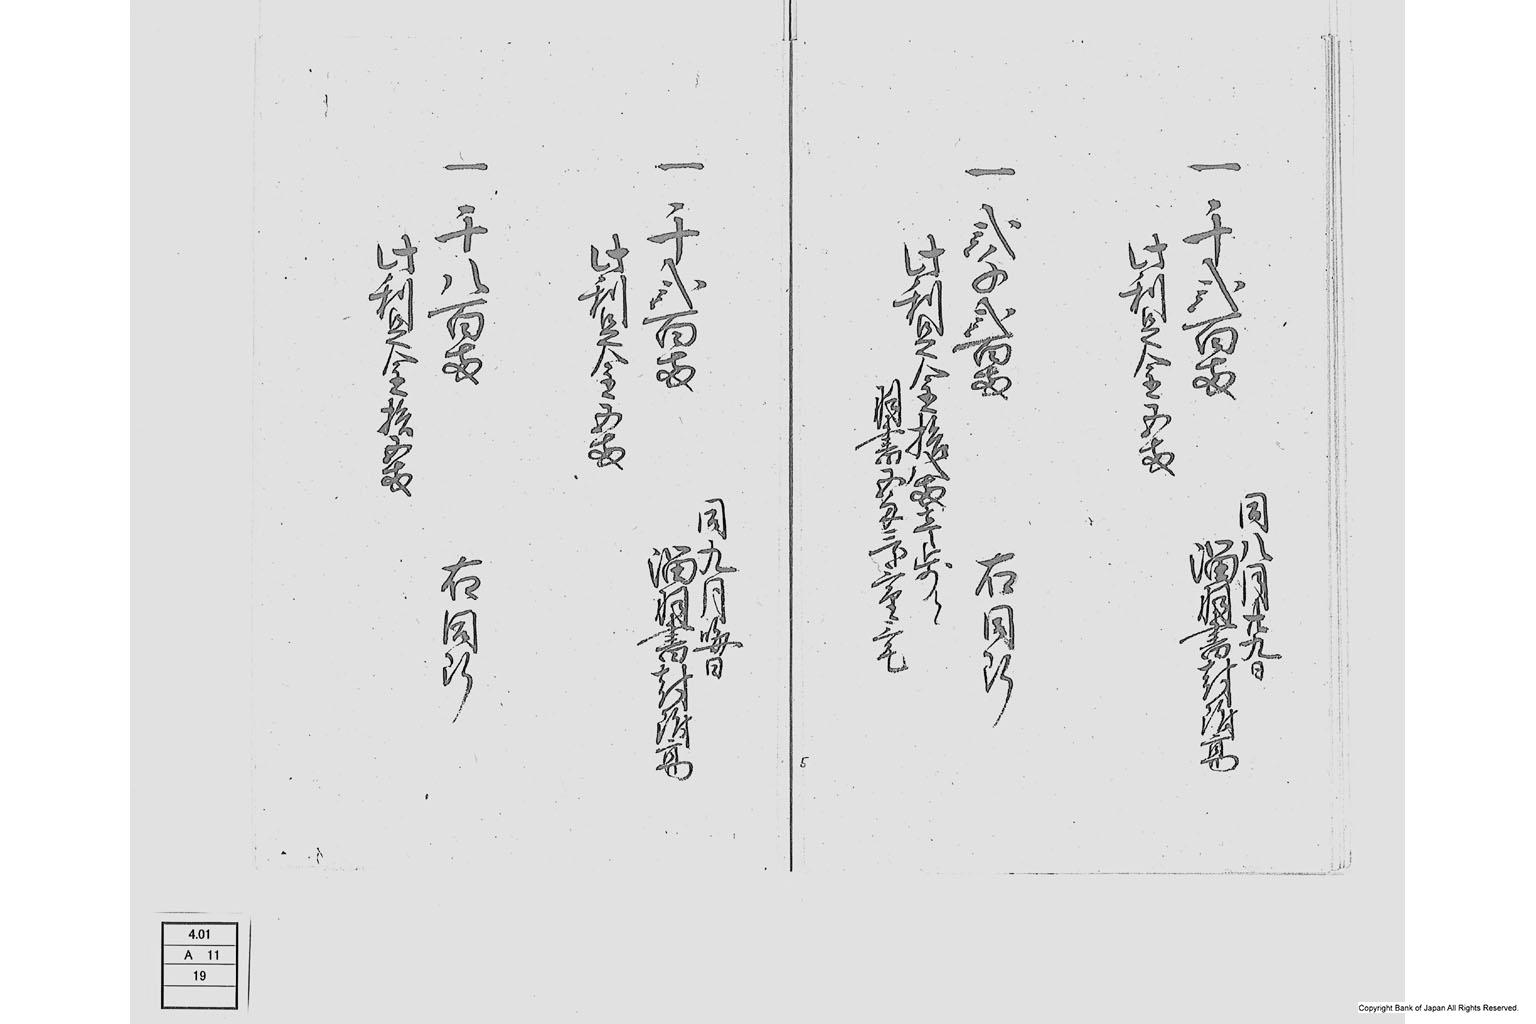 一 千弐百両
此利足金五両
同八月廿九日
溜明書封附高
一 弐千弐百両
此利足金拾弐両三歩ト
明書
右同断
5
一 千弐百両
此利足金五両
同九月晦日
溜明書封附高
一 千八百両
此利足金拾五両
右同断
4.01
A 11
19
Copyright Bank of Japan All Rights Reserved.